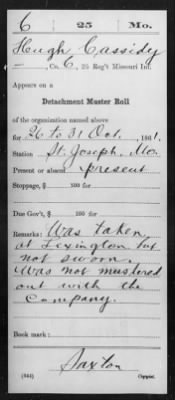 6 25 Mo.
Hugh Cassidy
—, Co. C, 25 Reg't Missouri Inf.
Appears on a
Detachment Muster Roll
of the organization named above
for 26 to 31 Oct, 1861.
Station St. Joseph, Mo.
Present or absent present
Stoppage, $ 100 for
Due Gov't, $ 100 for
Remarks: Was taken
at Lexington but
not sworn.
Was not mustered
out with the
Company.
Book mark:
Saxton
(344) Copyist.